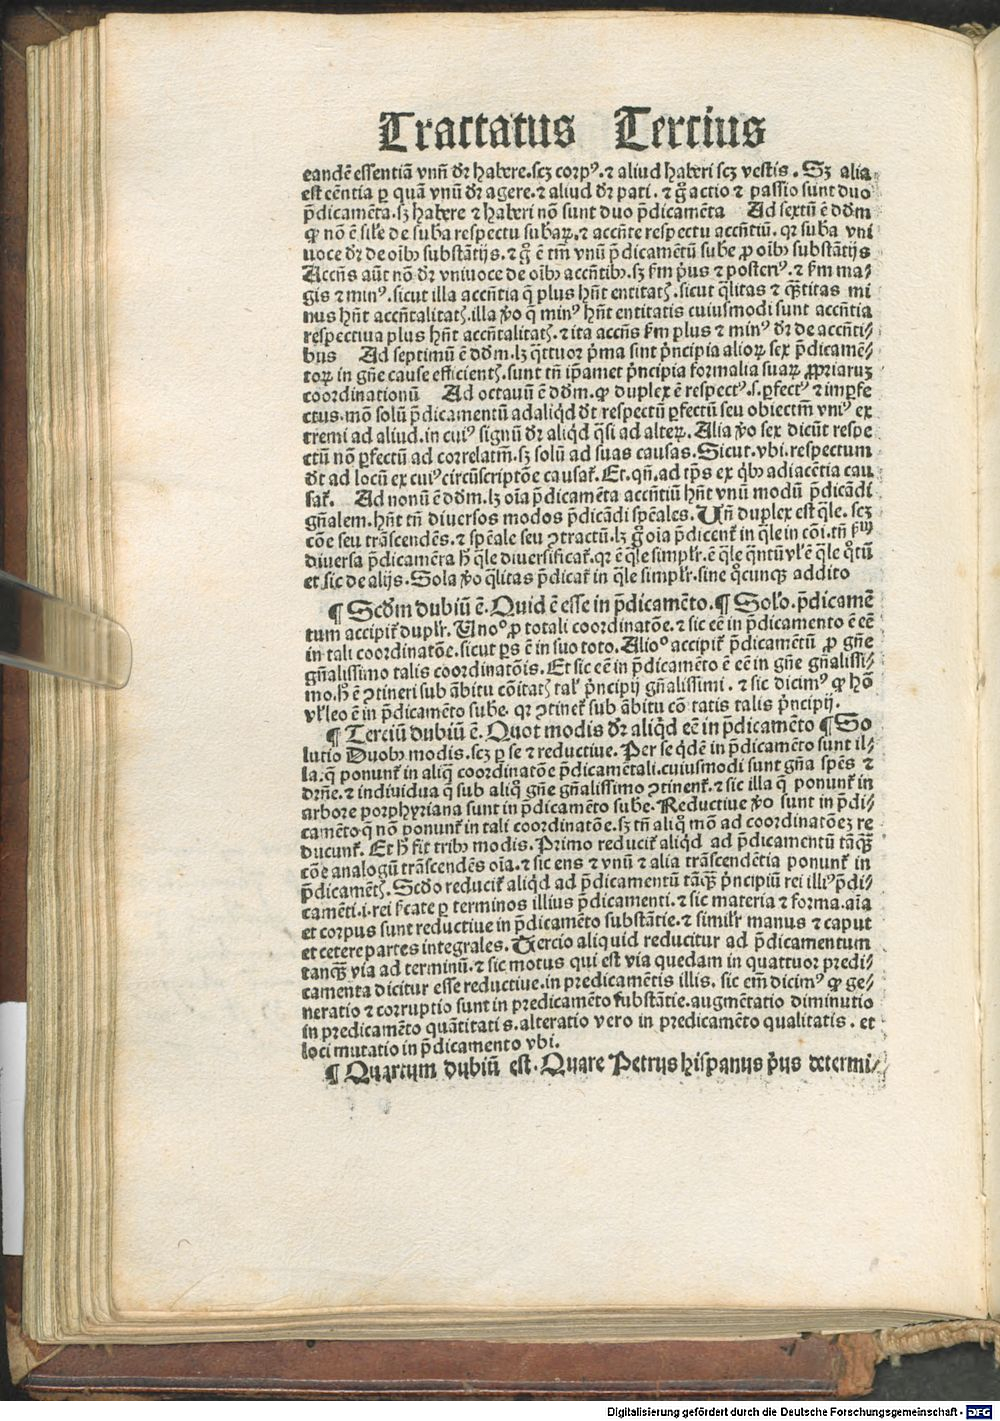 Tractatus Tercius
eandē essentiā vnū dr̄ habere.scꝫ corpꝰ.⁊ aliud haberi scꝫ vestis. Sꝫ alia
est cēntia ꝑ quā vnū dr̄ agere.⁊ aliud dr̄ pati. ⁊ gͦ actio ⁊ passio sunt duo
p̄dicamēta.sꝫ habere ⁊ haberi nō sunt duo p̄dicamēta Ad sextū ē dd̄m
ꝙ nō ē sil̄e de sub̄a respectu sub̄aꝝ.⁊ accn̄te respectu accn̄tiū. qꝛ sub̄a vni
uoce dr̄ de oīb̄ꝰ substātijs.⁊ gͦ ē tm̄ vnū p̄dicamētū sub̄e ꝓ oīb̄ꝰ substātijs
Accn̄s aūt nō dr̄ vniuoce de oīb̄ꝰ accn̄tib̄ꝰ.sꝫ ẜm pͥus ⁊ posteriꝰ.⁊ ẜm ma⸗
gis ⁊ minꝰ.sicut illa accn̄tia q̄ plus hn̄t entitatꝭ.sicut q̄litas ⁊ qꝫ̄titas mi
nus hn̄t accn̄talitatꝭ.illa ꝟo q̄ minꝰ hn̄t entitatis cuiusmodi sunt accn̄tia
respectiua plus hn̄t accn̄talitatꝭ.⁊ ita accn̄s ẜm plus ⁊ minꝰ dr̄ de accn̄ti⸗
bus Ad septimū ē dd̄m.lꝫ q̄ttuor pͥma sint pͥncipia alioꝝ sex p̄dicamē⸗
toꝝ in gn̄e cause efficientꝭ.sunt tn̄ ip̄amet pͥncipia formalia suaꝝ ꝓpriaruꝫ
coordinationū Ad octauū ē dd̄m.ꝙ duplex ē respectꝰ.s.ꝑfectꝰ ⁊ imꝑfe
ctus.mō solū p̄dicamentū ad aliqͥd dt̄ respectū ꝑfectū seu obiectm̄ vniꝰ ex
tremi ad aliud.in cuiꝰ signū dr̄ aliqͥd q̄si ad alteꝝ.Alia ꝟo sex dicūt respe
ctū nō ꝑfectū ad correlatm̄.sꝫ solū ad suas causas.Sicut.vbi.respectum
dt̄ ad locū ex cuiꝰ circūscriptōe causat᷑. Et.qn̄.ad tp̄s ex qͥb̄ꝰ adiacētia cau
sat᷑. Ad nonū ē dd̄m.lꝫ oīa p̄dicamēta accn̄tiū hn̄t vnū modū p̄dicādi
gn̄alem.hn̄t tn̄ diuersos modos p̄dicādi spēales.Vn̄ duplex est q̄le.scꝫ
cōe seu trāscendēs.⁊ spēale seu ꝯtractū.lꝫ gͦ oīa p̄dicent᷑ in q̄le in cōi.tn̄ ẜm
diuersa p̄dicamēta h̄ q̄le diuersificat᷑.qꝛ ē q̄le simplr̄.ē q̄le qͣntū vl̓ ē q̄le qͦtū
et sic de alijs.Sola ꝟo q̄litas p̄dicat᷑ in q̄le simplr̄.sine qͦcunqꝫ addito
¶ Scd̄m dubiū ē.Quid ē esse in p̄dicamēto.¶ Solo.p̄dicamē
tum accipit᷑ duplr̄.Vnoͦ ꝓ totali coordinatōe.⁊ sic eē in p̄dicamento ē eē
in tali coordinatōe.sicut ꝑs ē in suo toto.Alioͦ accipit᷑ p̄dicamētū ꝓ gn̄e
gn̄alissimo talis coordinatōis.Et sic eē in p̄dicamēto ē eē in gn̄e gn̄alissi⸗
mo.h̄ ē ꝯtineri sub ābitu cōitatꝭ tal̓ pͥncipij gn̄alissimi. ⁊ sic dicimꝰ ꝙ hō
vl̓ leo ē in p̄dicamēto sub̄e. qꝛ ꝯtinet᷑ sub ābitu cōitatis talis pͥncipij.
¶ Terciū dubiū ē.Quot modis dr̄ aliqͥd eē in p̄dicamēto ¶ So
lutio Duob̄ꝰ modis.scꝫ ꝑ se ⁊ reductiue.Per se qͥdē in p̄dicamēto sunt il⸗
la.q̄ ponunt᷑ in aliq̄ coordinatōe p̄dicamētali.cuiusmodi sunt gn̄a spēs ⁊
drn̄e.⁊ indiuidua q̄ sub aliqͦ gn̄e gn̄alissimo ꝯtinent᷑.⁊ sic illa q̄ ponunt᷑ in
arbore porphyriana sunt in p̄dicamēto sub̄e.Reductiue ꝟo sunt in p̄di⸗
camēto.q̄ nō ponunt᷑ in tali coordinatōe.sꝫ tn̄ aliqͦ mō ad coordinatōeꝫ re
ducunt᷑. Et h̄ fit trib̄ꝰ modis.Primo reducit᷑ aliqͥd ad p̄dicamentū tāqꝫ̄
cōe analogū trāscendēs oīa.⁊ sic ens ⁊ vnū ⁊ alia trāscendētia ponunt᷑ in
p̄dicamētꝭ.Scd̄o reducit᷑ aliqͥd ad p̄dicamentū tāqꝫ̄ pͥncipiū rei illiꝰ p̄di⸗
camēti.i.rei ẜicate ꝑ terminos illius p̄dicamenti.⁊ sic materia ⁊ forma.aīa
et corpus sunt reductiue in p̄dicamēto substātie.⁊ similr̄ manus ⁊ caput
et cetere partes integrales.Tercio aliquid reducitur ad p̄dicamentum
tanqꝫ̄ via ad terminū.⁊ sic motus qui est via quedam in quattuor predi⸗
camenta dicitur esse reductiue.in predicamētis illis. sic em̄ dicimꝰ ꝙ ge⸗
neratio ⁊ corruptio sunt in predicamēto substātie.augmētatio diminutio
in predicamēto quātitatis.alteratio vero in predicamēto qualitatis. et
loci mutatio in p̄dicamento vbi.
¶ Quartum dubiū est.Quare Petrus hispanus pͥus determi⸗
Digitalisierung gefördert durch die Deutsche Forschungsgemeinschaft - DFG